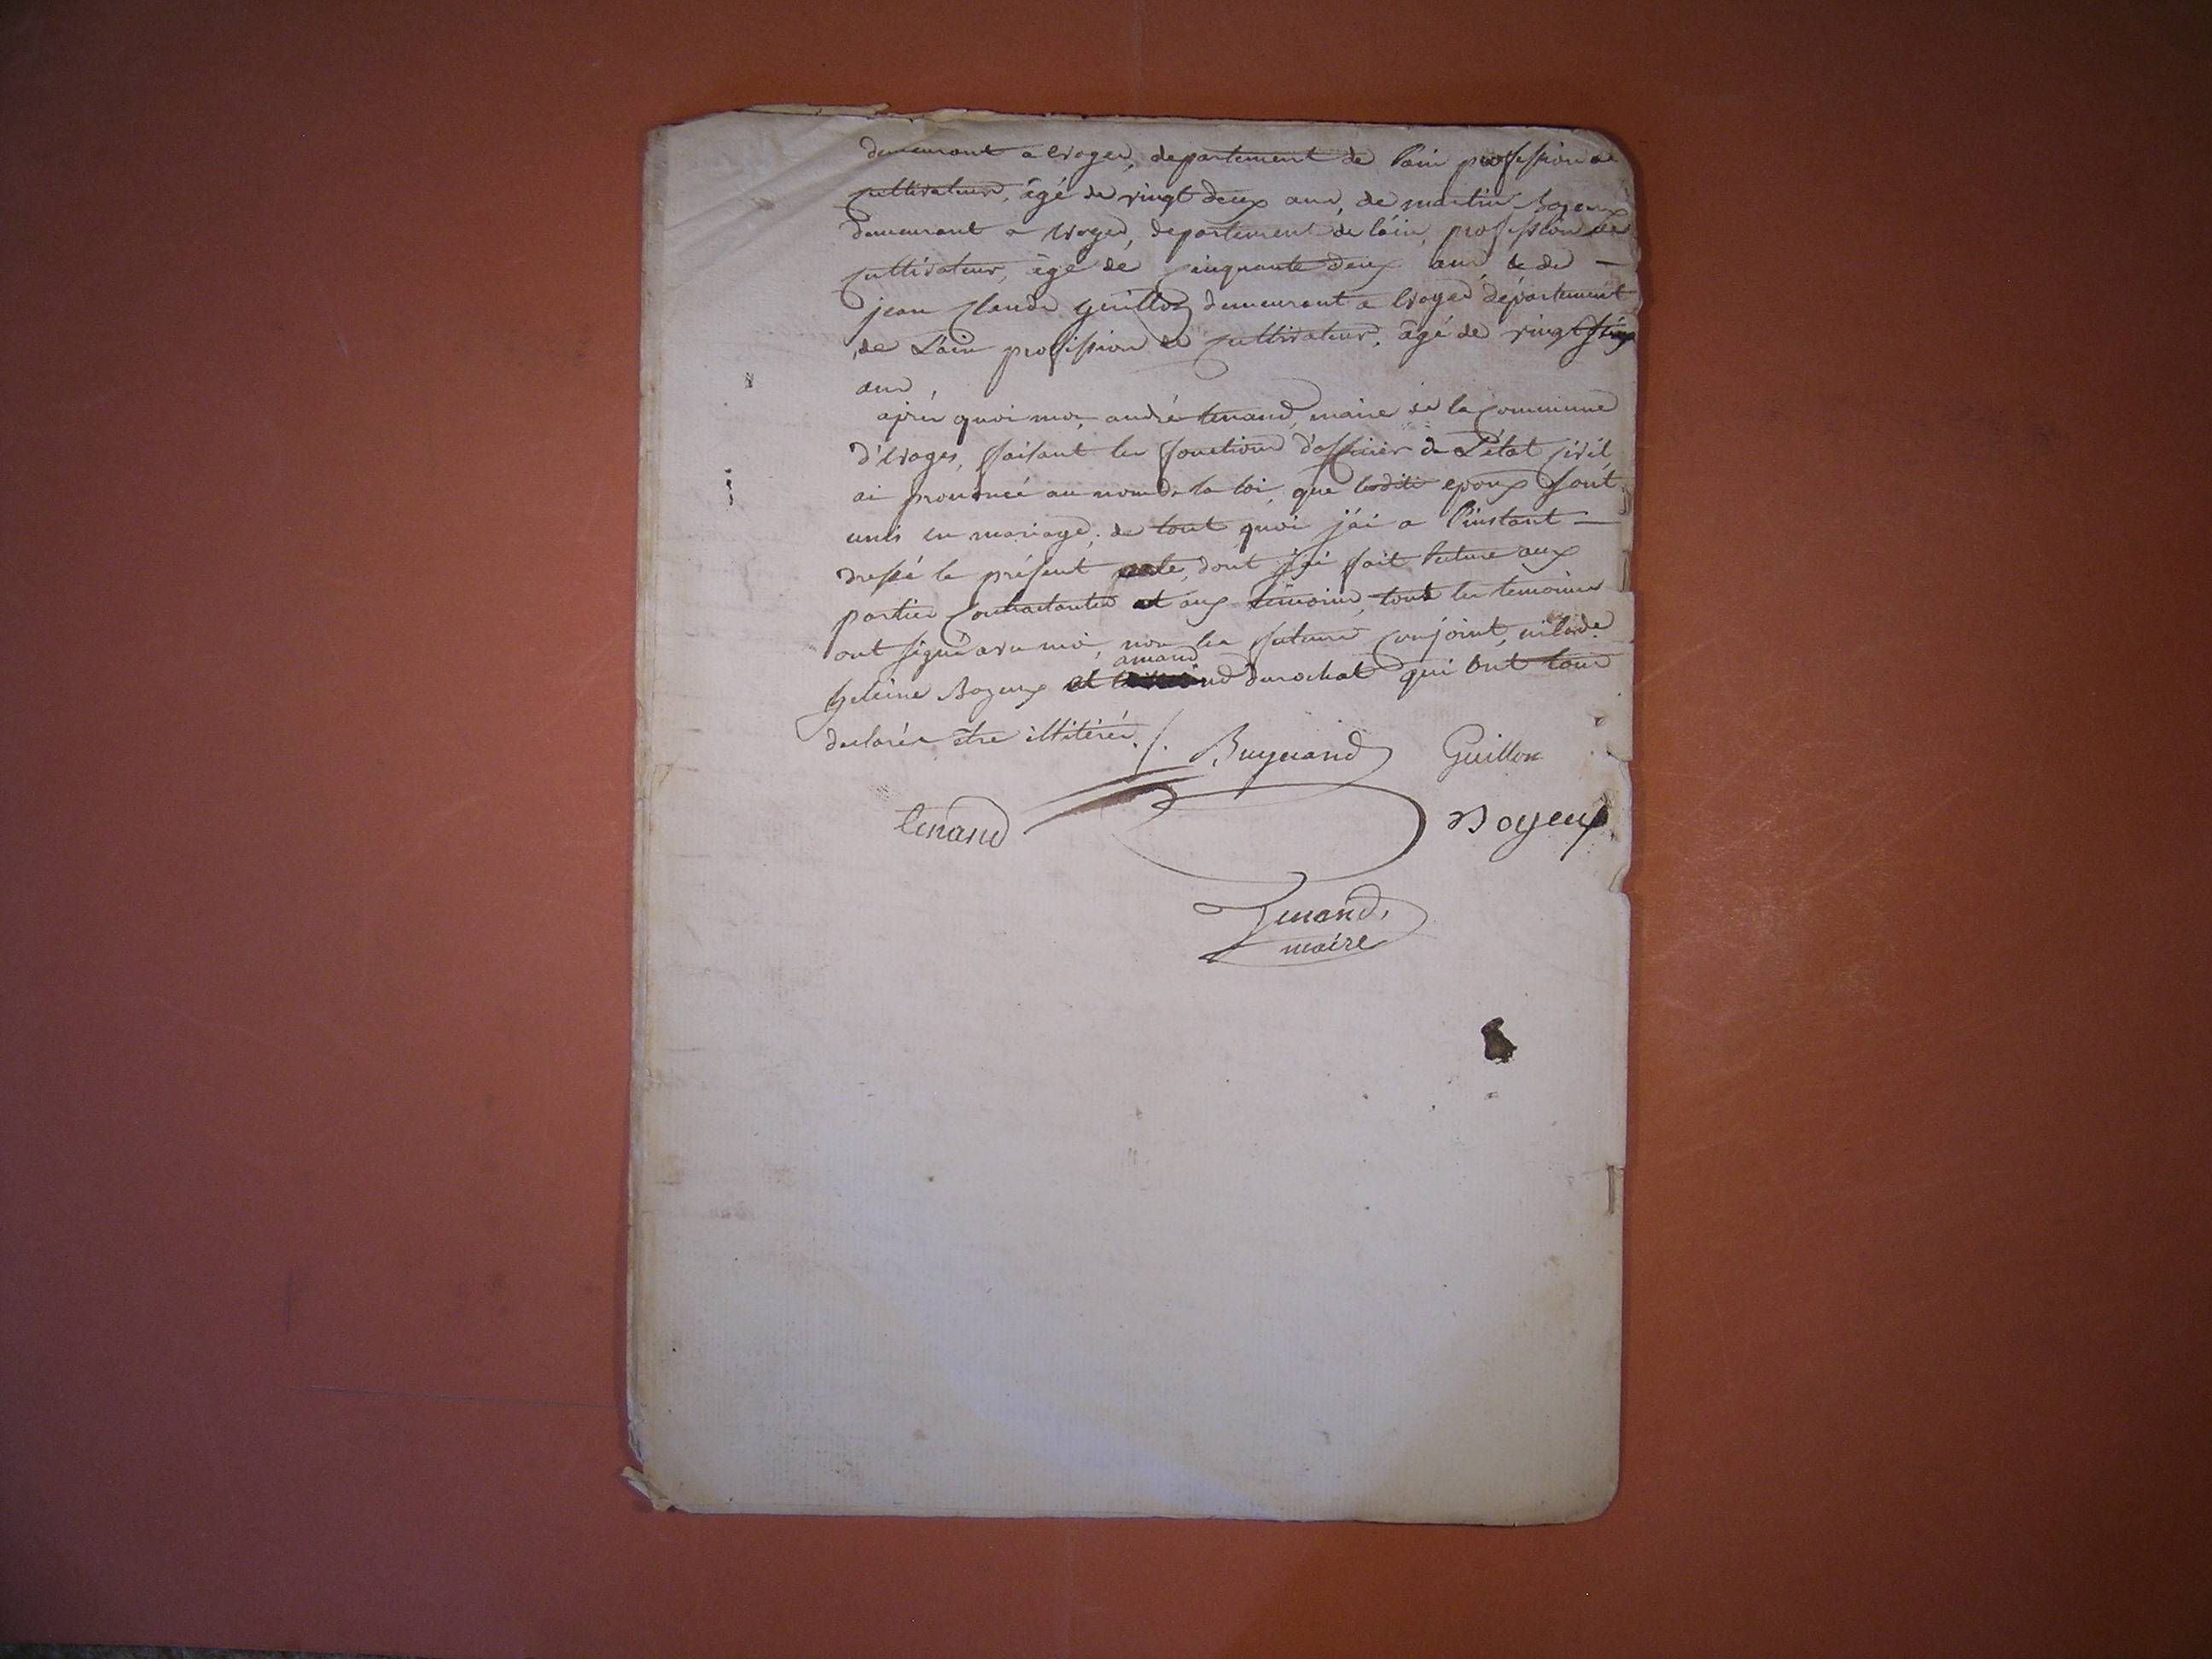 demeurant a Evoges, departement de l'ain profession de
cultivateur, âgé de vingt deux ans, de martin Bozeux
demeurant a Evoges, departement de l'ain, profession de
cultivateur, âgé de cinquante deux ans & de —
jean claude guillon demeurant a Evoges département
de L'ain profession de cultivateur, âgé de vingt six
ans.
après quoi moi, andré tenand, maire de la commune
d'Evoges, faisant les fonctions d'officier de L'état civil
ai prononcé au nom de la loi, que lesdits epoux sont
unis en mariage; de tout quoi j'ai a l'instant —
dressé le présent acte, dont j'ai fait lecture aux
parties contractantes et aux témoins, tous les temoins
ont signé avec moi, non les futurs conjoint, ni
amand
heleine Bozeux et durochat qui ont tous
declarés être illitérés ./.
Buynand Guillon
tenand Boyeux
Tenand,
maire